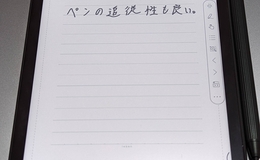 ペンの追従性も良い。